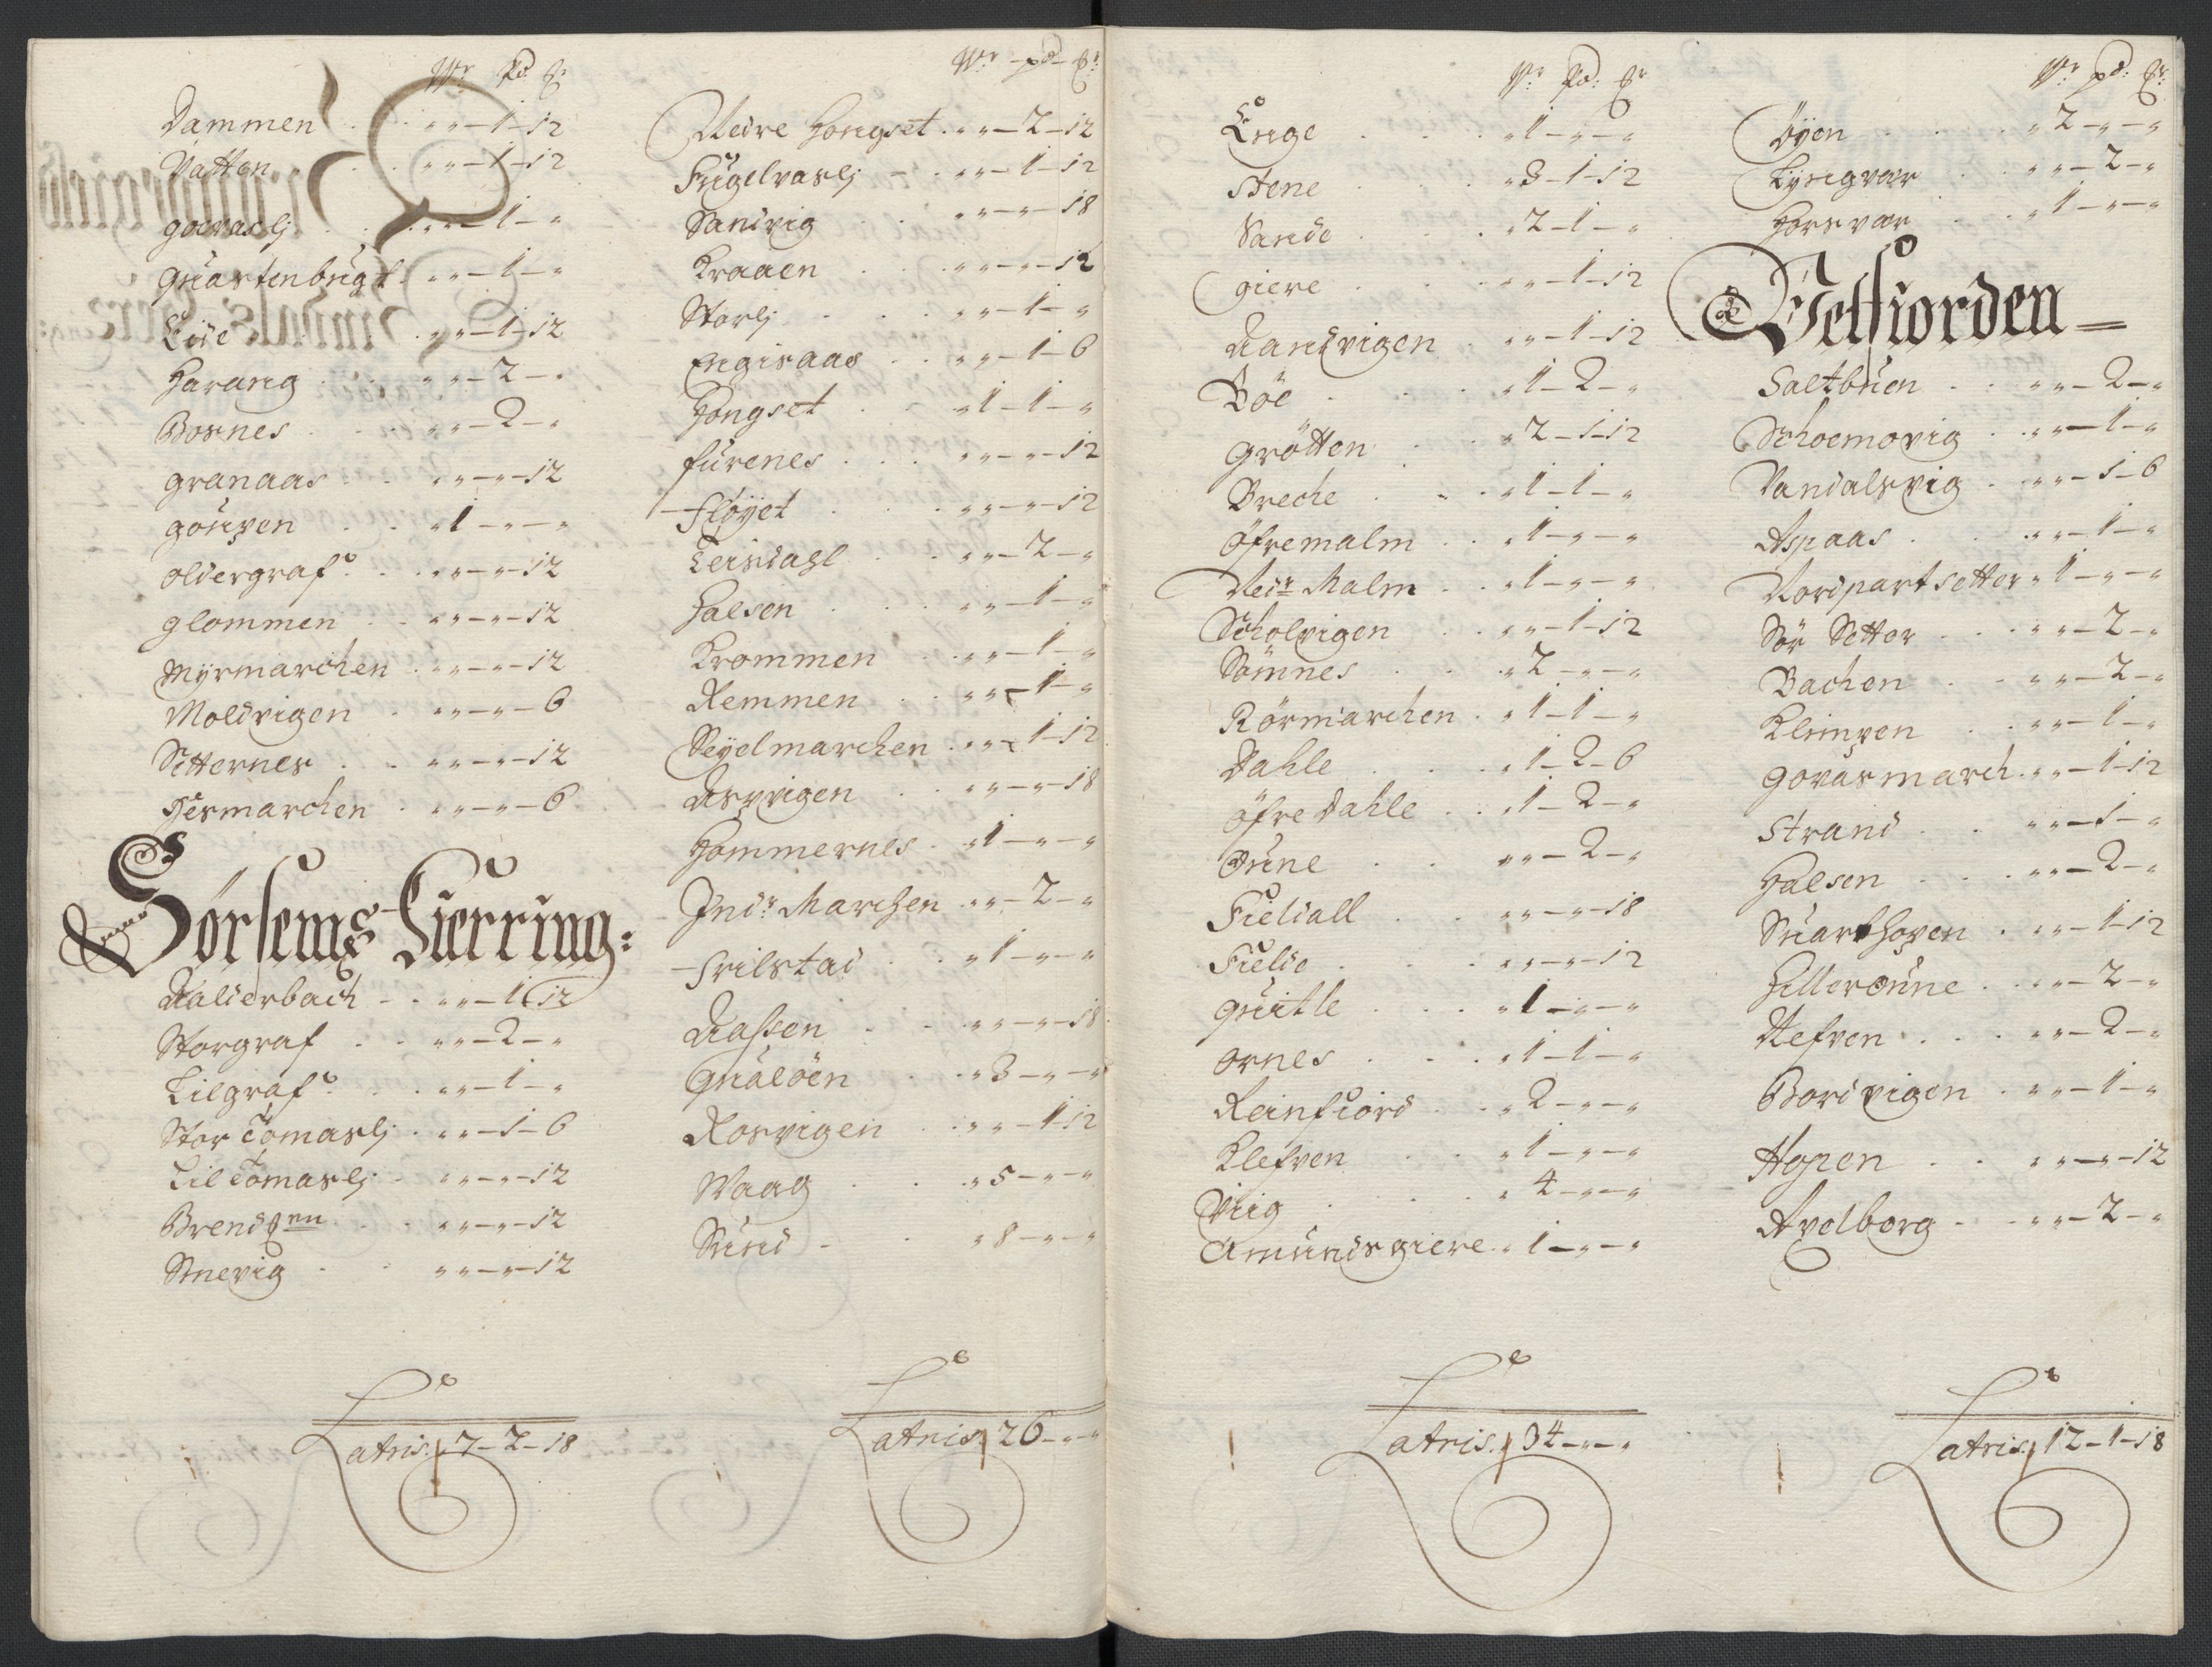 Wr Pd: Er
Dammen . . „ „ – 1 – 12
Vatten . . „ „ – 1 – 12
goevaslj . . „ „ – 1 – „
Quartenbugt . „ „ – 1 – „
Eide . „ „ – 1 – 12
Harang . . „ „ – 2 – „
Bosnes . . „ „ – 2 – „
granaas . . „ „ – „ – 12
goupen . . „ 1 – „ – „
oldergrafe . . „ „ – „ – 12
glommen . . „ „ – „ – 12
Myrmarchen . „ „ – „ – 12
Moldvigen . „ „ – „ – 6
Setternes . . „ „ – „ – 12
Hesmarchen . „ „ – „ – 6
Sörsems Tierring:
Aalderbach . . „ „ – 1 – 12
Storgraf . . „ „ – 2 – „
Lilgrafe . . „ „ – 1 – „
Stor Tomaslj . „ „ – 1 – 6
Lil Tomaslj . „ „ – „ – 12
Brendgen . . „ „ – „ – 12
Snevig . . „ „ – „ – 12
Latris. 7 – 2 – 18
Wr – pd – Er:
Nedre Hongset . „ „ – 2 – 12
Fugelvaslj – . „ „ – 1 – 12
Sandvig . . „ „ – „ – 18
Kraaen . . „ „ – „ – 12
Storlj . . „ „ – 1 – „
Engisaas . . „ „ – 1 – 6
Hongset . . „ 1 – 1 – „
furenes . . . „ „ – „ – 12
Fløyet . . „ „ – „ – 12
Leirdahl . . „ „ – 2 – „
Halsen . . . „ „ – 1 – „
Krommen . . „ „ – 1 – „
Remmen . . „ „ – 1 – „
Seyelmarchen . „ „ – 1 – 12
Aspvigen . . „ „ – „ – 18
Hommernes . „ 1 – „ – „
Indr Marchen . „ „ – 2 – „
Frilstad . „ 1 – „ – „
Aassen . . „ „ – „ – 18
Qualöen . . „ 3 – „ – „
Rosvigen . . „ „ – 1 – 12
Waag . . „ 5 – „ – „
Sund – . „ 8 – „ – „
Latris. 26 – „ – „
Wr Pd: Er
Enge . . . „ 1 – „ – „
Stene . . . „ 3 – 1 – 12
Sande . . . „ 2 – 1 – „
giere . . . „ „ – 1 – 12
Aandvigen . „ „ – 1 – 12
Böe . . . „ 1 – 2 – „
grötten . . „ 2 – 1 – 12
Breche . . „ 1 – 1 – „
Öfremalm . . „ 1 – „ – „
Nedr Malm . . „ 1 – „ – „
Scholvigen . . „ „ – 1 – 12
Sömnes . . „ 2 – „ – „
Rörmarchen . „ 1 – 1 – „
Dahle . . „ 1 – 2 – 6
Öfre Dahle . . „ 1 – 2 – „
Dune . . „ „ – 2 – „
Fieldall . . „ „ – „ – 18
Fielde . . . „ „ – „ – 12
Quitle . . . „ 1 – „ – „
Ornes . . . „ 1 – 1 – „
Reinfiord . . „ 2 – „ – „
Klefven . . „ 1 – „ – „
Viig . . . „ 4 – „ – „
Amundsgiere . „ 1 – „ – „
Latris. 34 – „ – „
Wr pd: Er:
Öyen . . . „ 2 – „ – „
Lyngvær . . „ „ – 2 – „
Horsvær . . „ 1 – „ – „
Velfiorden =
Saltbuen . . „ „ – 2 – „
Schoemovig . „ „ – 1 – „
Vandalsvig . „ „ – 1 – 6
Aspaas . . „ „ – 1 – „
Nordpart Setter „ 1 – „ – „
Sör Setter . . . „ „ – 2 – „
Bachen . . „ „ – 2 – „
Klimpen . . „ „ – 1 – „
Govasmarch . „ „ – 1 – 12
Strand . . „ „ – 1 – „
Halsen . . . „ „ – 2 – „
Suarthopen . „ „ – 1 – 12
Hillerounne . „ „ – 2 – „
Nefven . . . „ „ – 2 – „
Bordvigen . „ „ – 1 – „
Hopen . . „ „ – „ – 12
Avelborg . „ „ – 2 – „
Latris. 12 – 1 – 18